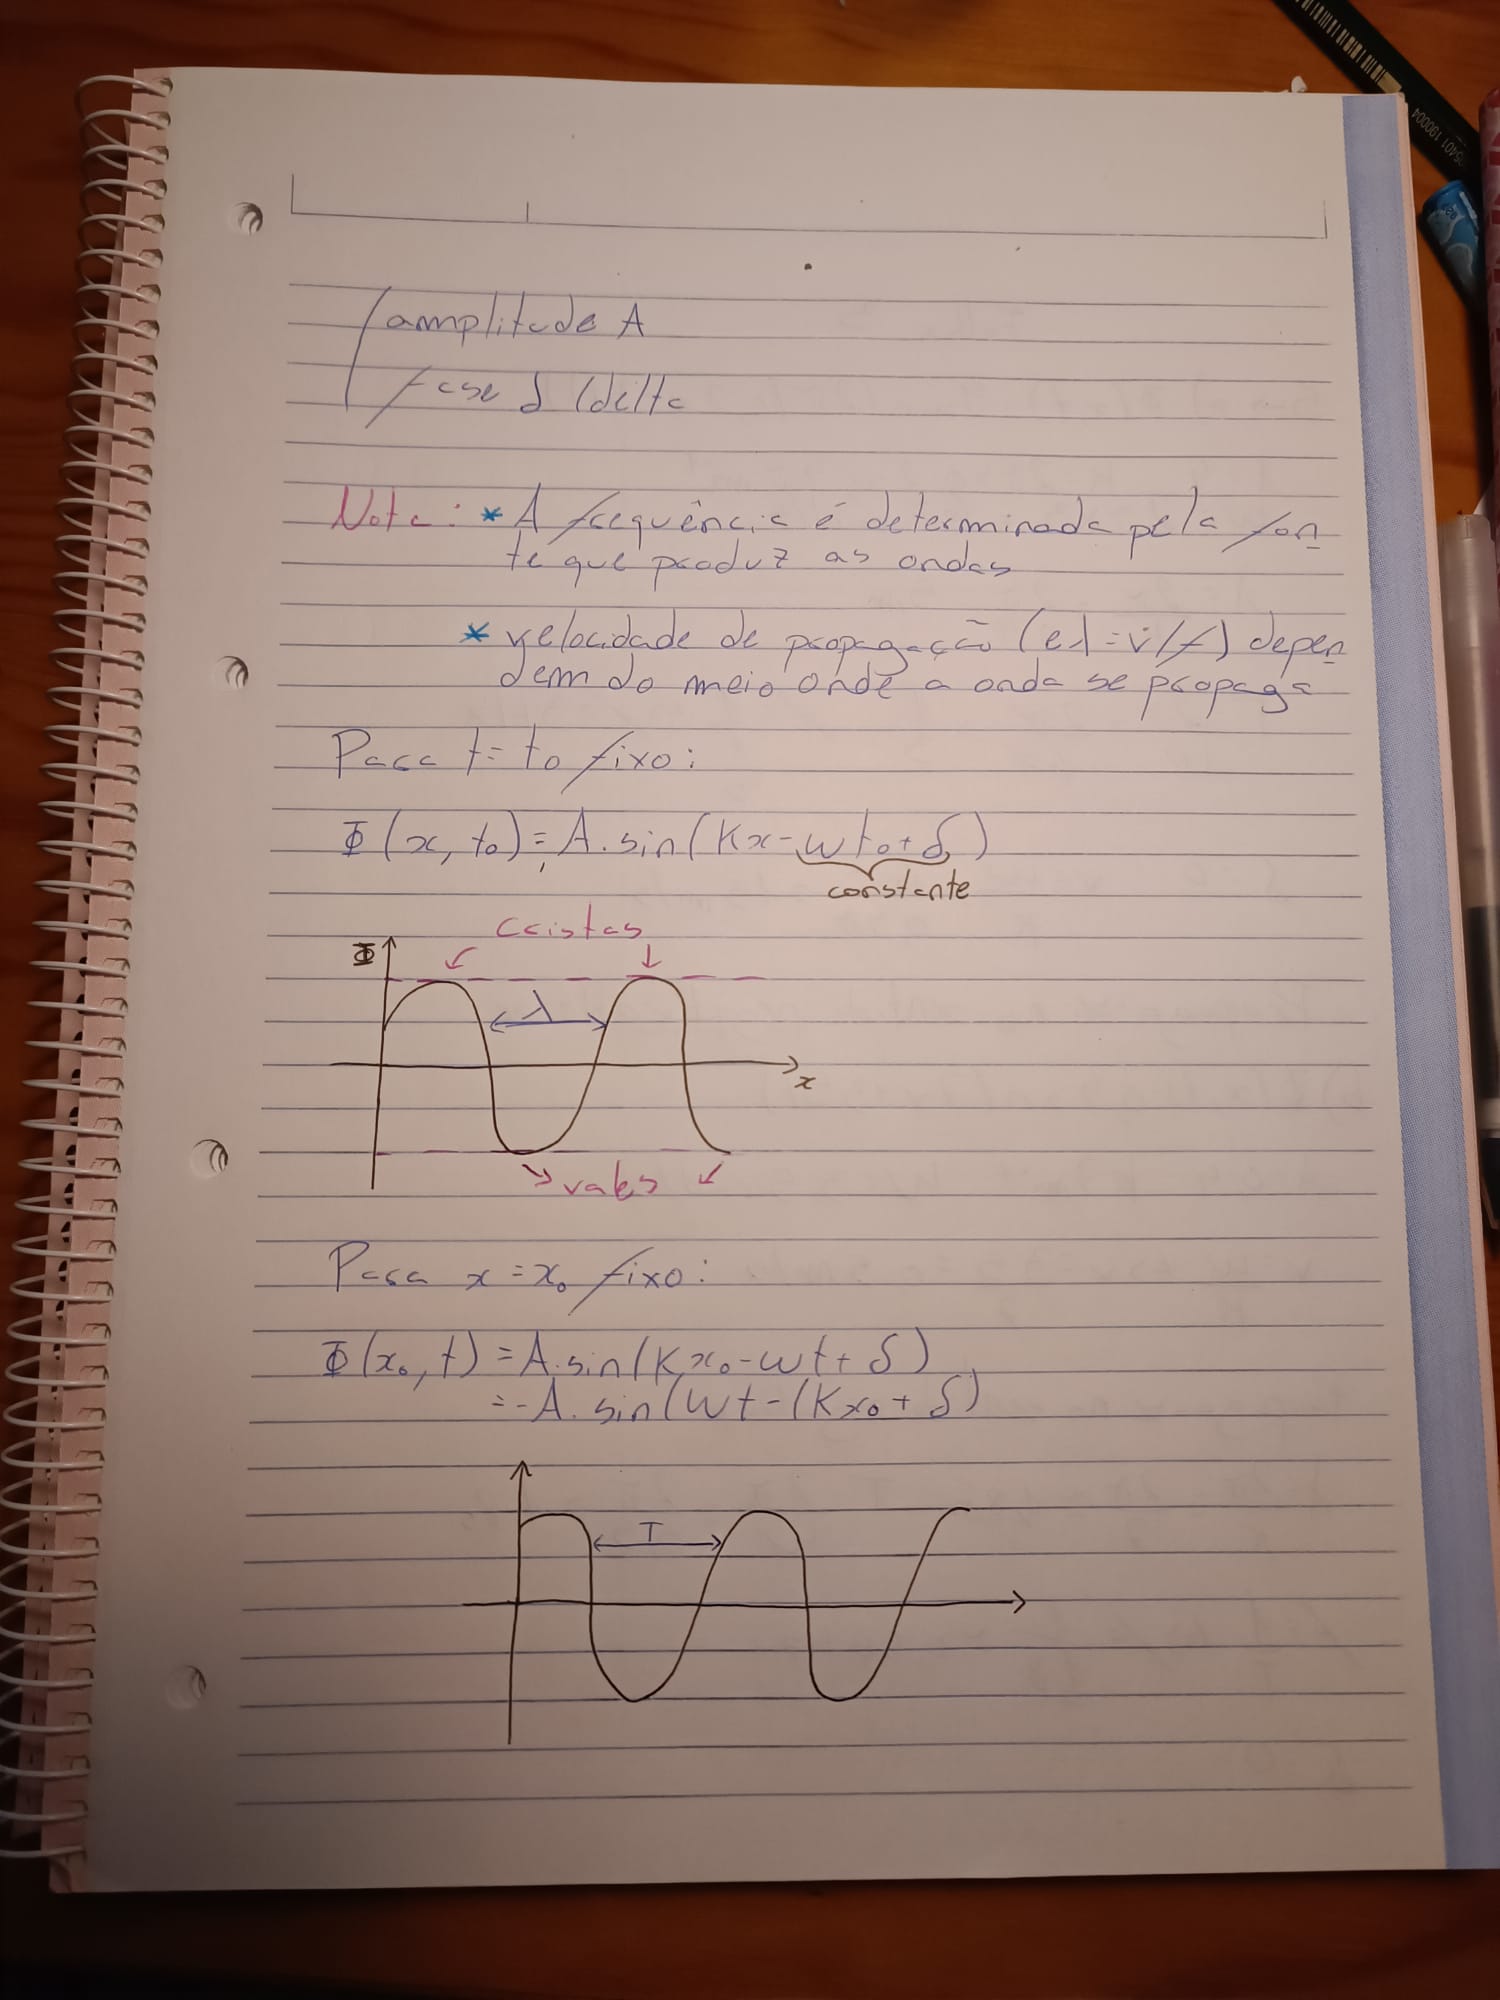 amplitude A
fase δ (delta
Nota: * A frequência é determinada pela fon
te que produz as ondas
* velocidade de propagação (e λ = v/f) depen
dem do meio onde a onda se propaga
Para t = t₀ fixo:
Φ(x, t₀) = A. sin(Kx - wt₀ + δ)
constante
cristas
Φ
λ
x
vales
Para x = x₀ fixo:
Φ(x₀, t) = A. sin(Kx₀ - wt + δ)
= -A. sin(wt - (Kx₀ + δ)
T